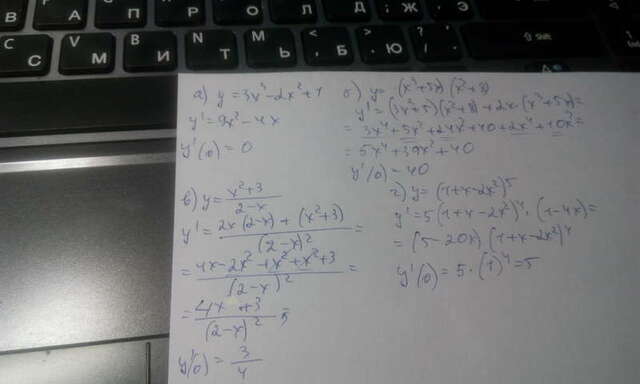 Ф Ы В А П Р О Л Д Ж Э
Я Ч С М И Т Ь Б Ю
C V B N M
а) y = 3x³ - 2x² + 1
y' = 9x² - 4x
y'(0) = 0
б) y = (x³+5x)(x²+8)
y' = (3x²+5)(x²+8) + 2x·(x³+5x) =
= 3x⁴ + 5x² + 24x² + 40 + 2x⁴ + 10x² =
= 5x⁴ + 39x² + 40
y'(0) = 40
в) y = (x²+3)/(2-x)
y' = (2x(2-x) + (x²+3))/(2-x)² =
= (4x - 2x² + x² + x² + 3)/(2-x)² =
= (4x + 3)/(2-x)² ;
y'(0) = 3/4
г) y = (1+x-2x²)⁵
y' = 5(1+x-2x²)⁴ · (1-4x) =
= (5-20x)(1+x-2x²)⁴
y'(0) = 5·(1)⁴ = 5